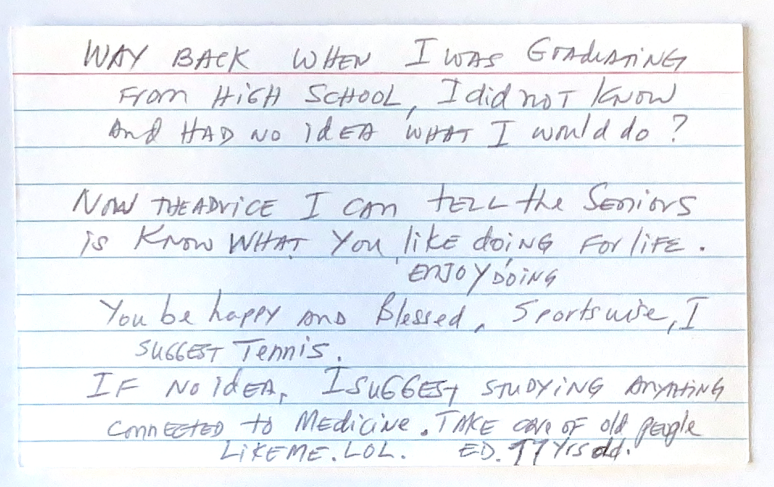 WAY BACK WHEN I WAS GRADUATING
From HIGH SCHOOL, I did noT KNOW
And HAD NO IDEA WHAT I would do?
NOW THE ADVICE I CAN TELL the SENIORS
is KNOW WHAT YOU like doing FOR LIFE.
ENJOY DOING
You be happy AND Blessed, Sportswise, I
SUGGEST TENNIS.
IF NO IDEA, I SUGGEST STUDYING ANYTHING
CONNECTED to MEDICINE. TAKE care of old people
LIKE ME. LOL. ED. 77 Yrs old.